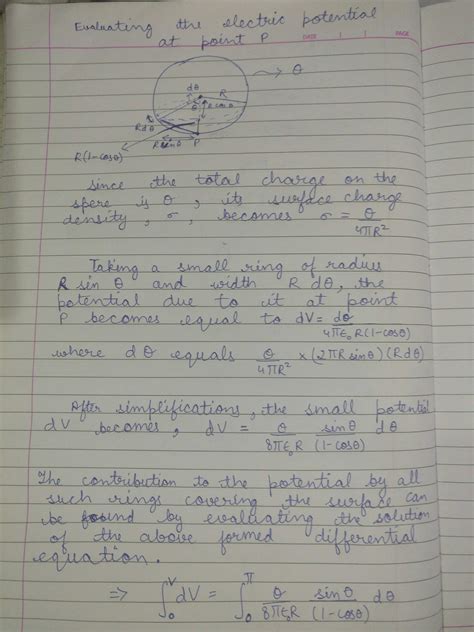 Evaluating the electric potential
at point P
DATE
PAGE
dθ
R
→ Q
θ
R cosθ
R dθ
R sinθ
P
R(1-cosθ)
Since the total charge on the
spere is Q, its surface charge
density, σ, becomes σ = Q/4πR²
Taking a small ring of radius
R sin θ and width R dθ, the
potential due to it at point
P becomes equal to dV = dQ/4πε₀R(1-cosθ)
where dQ equals Q/4πR² × (2πR sinθ)(R dθ)
After simplifications, the small potential
dV becomes, dV = Q/8πε₀R sinθ/(1-cosθ) dθ
The contribution to the potential by all
such rings covering the surface can
be found by evaluating the solution
of the above formed differential
equation.
⇒ ∫₀ⱽ dV = ∫₀^π Q/8πε₀R sinθ/(1-cosθ) dθ